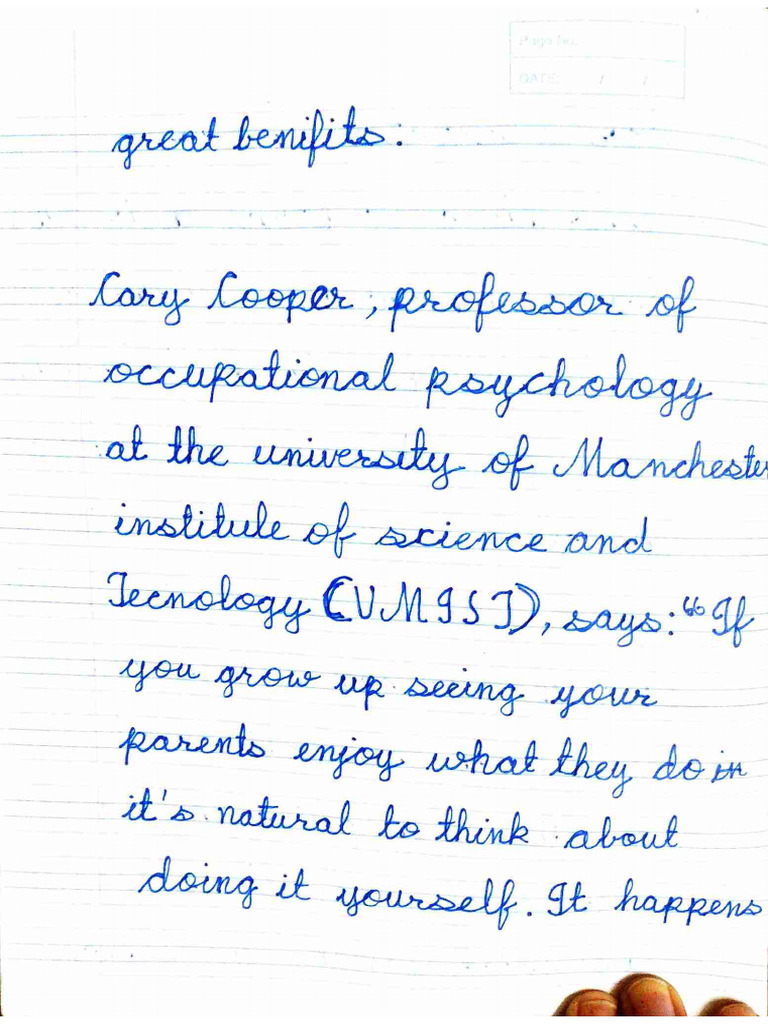 Page No.
DATE: / /
great benifits:
Cary Cooper, professor of
occupational psychology
at the university of Manchester
institute of science and
Tecnology (UMIST), says: "If
you grow up seeing your
parents enjoy what they do in
it's natural to think about
doing it yourself. It happens